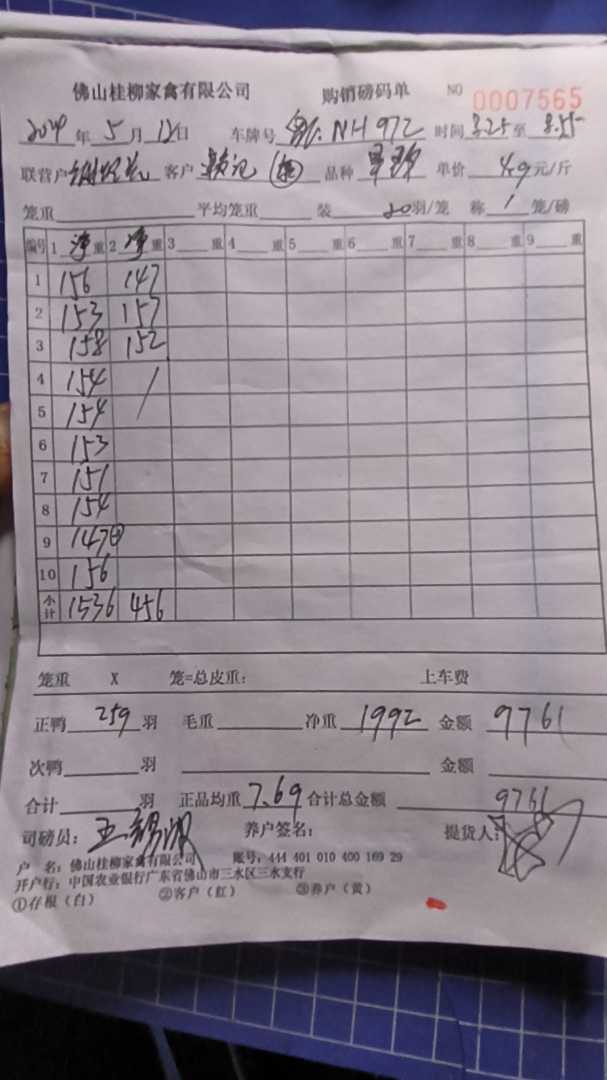 佛山桂柳家禽有限公司 购销磅码单 NO 0007565
年 5 月 12 日 车牌号 NH 972 时间 3.25 至 8.55
联营户 客户 品种 单价 4.9 元/斤
笼重 平均笼重 装 20 羽/笼 称 1 笼/磅
编号 1 净重 2 净重 3 重 4 重 5 重 6 重 7 重 8 重 9 重
1 156 147
2 153 157
3 158 152
4 154 /
5 154
6 153
7 151
8 154
9 147
10 156
小计 1536 456
笼重 X 笼=总皮重: 上车费
正鸭 259 羽 毛重 净重 1992 金额 9761
次鸭 羽 金额
合计 羽 正品均重 7.69 合计总金额 9761
司磅员: 养户签名: 提货人:
户 名: 佛山桂柳家禽有限公司 账号: 444 401 010 400 169 29
开户行: 中国农业银行广东省佛山市三水区三水支行
①存根(白) ②客户(红) ③养户(黄)